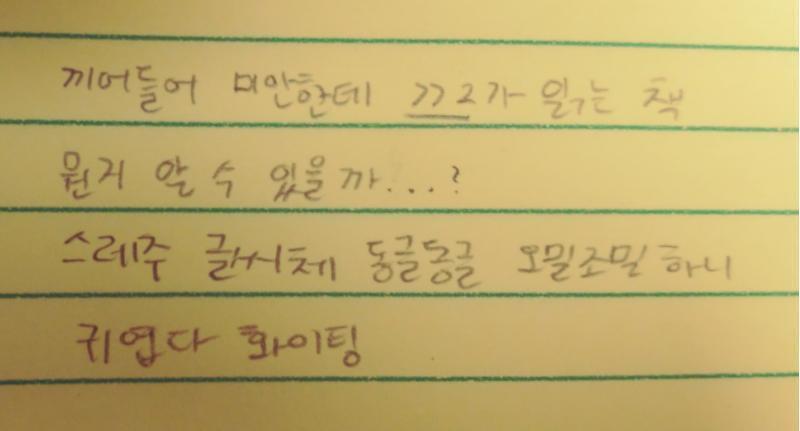 끼어들어 미안한데 >>2가 읽는 책
뭔지 알 수 있을까...?
스레주 글씨체 동글동글 오밀조밀 하니
귀엽다 화이팅